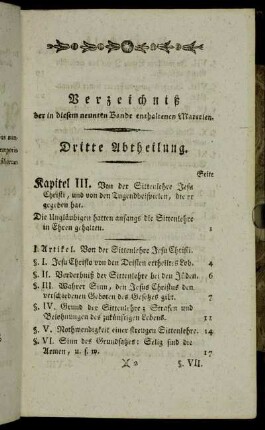 Verzeichniß
der in diesem neunten Bande enthaltenen Materien.
Dritte Abtheilung.
Seite
Kapitel III. Von der Sittenlehre Jesu
Christi, und von den Tugendbeispielen, die er
gegeben hat.
Die Ungläubigen hatten anfangs die Sittenlehre
in Ehren gehalten. 1
I Artikel. Von der Sittenlehre Jesu Christi.
§. I. Jesu Christo von den Deisten ertheiltes Lob. 4
§. II. Verderbniß der Sittenlehre bei den Jüden. 6
§. III. Wahrer Sinn, den Jesus Christus den
verschiedenen Geboten des Gesetzes gibt. 7
§. IV. Grund der Sittenlehre; Strafen und
Belohnungen des zukünftigen Lebens. 11
§. V. Nothwendigkeit einer strengen Sittenlehre. 14
§. VI. Sinn des Grundsatzes: Selig sind die
Armen, u. s. w. 17
§. VII.